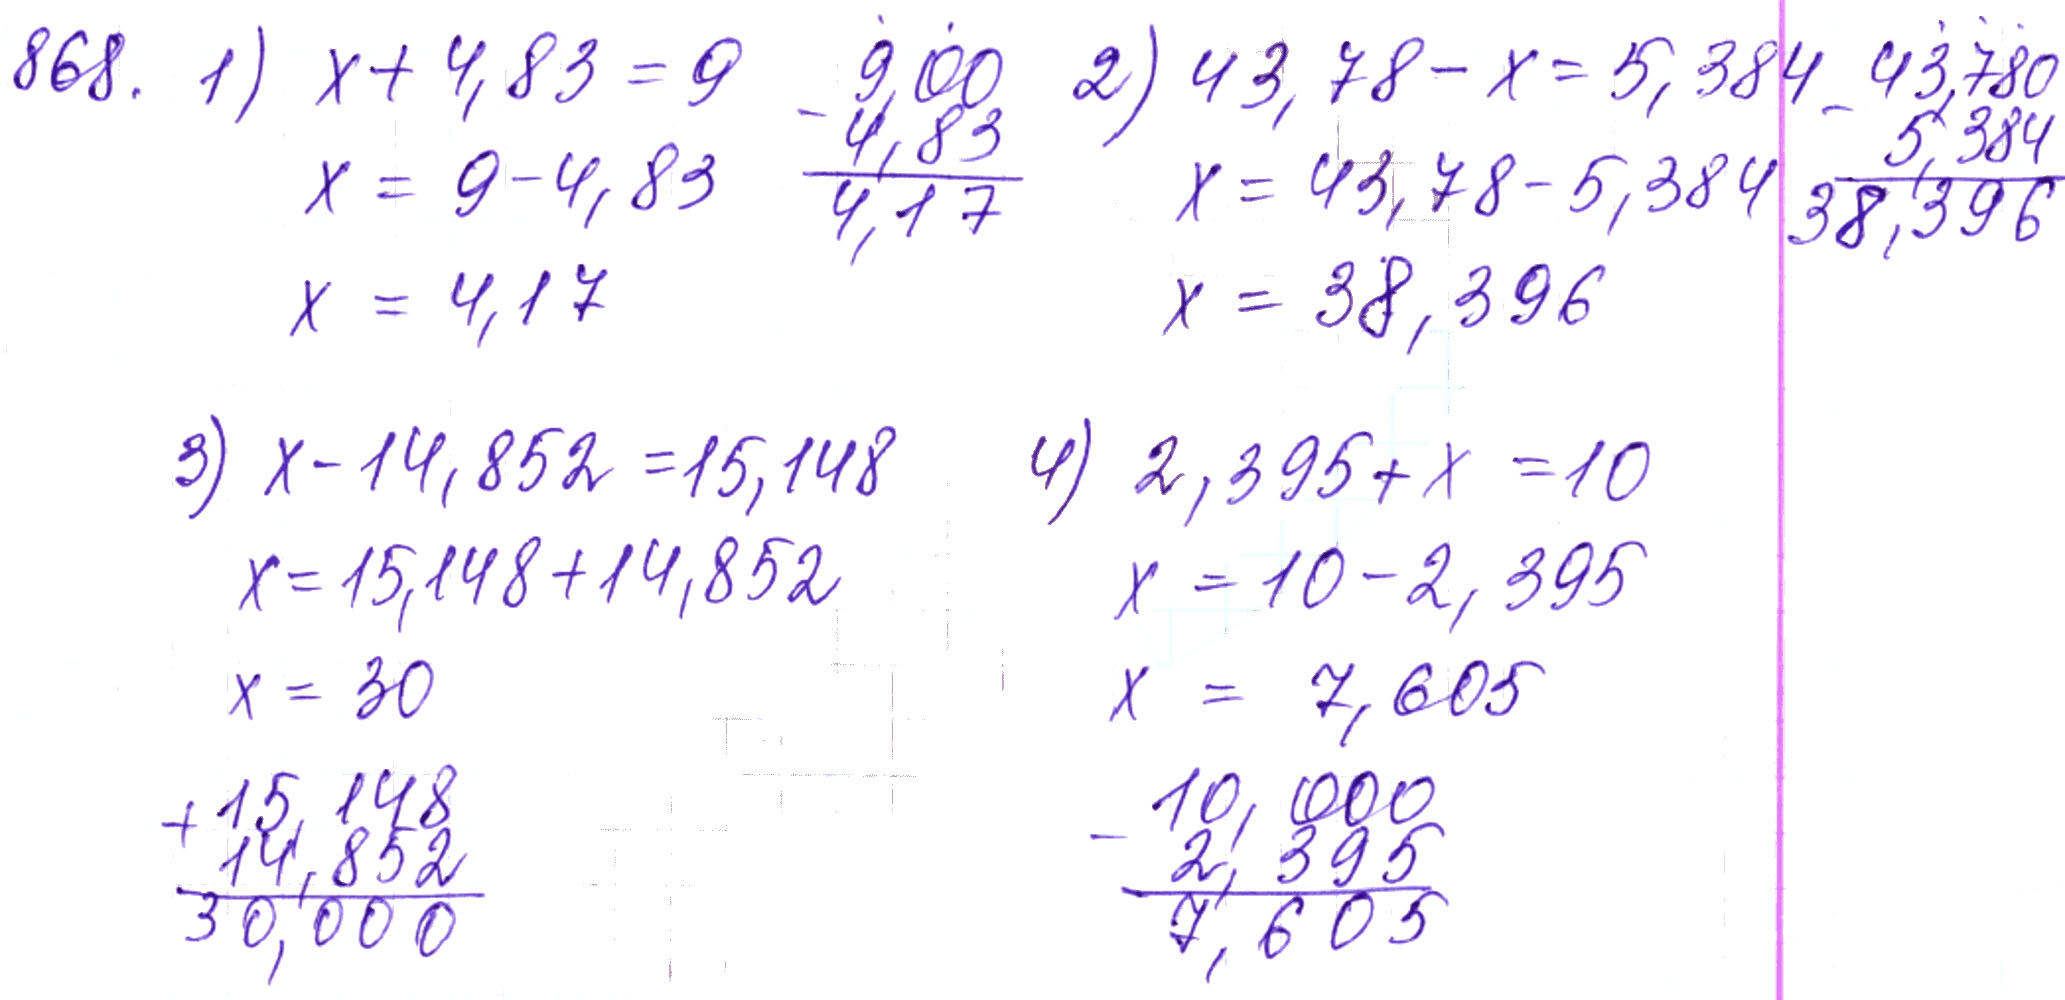 868. 1) x + 4,83 = 9
x = 9 - 4,83
x = 4,17
9,00
- 4,83
4,17
2) 43,78 - x = 5,384
x = 43,78 - 5,384
x = 38,396
43,780
- 5,384
38,396
3) x - 14,852 = 15,148
x = 15,148 + 14,852
x = 30
+ 15,148
14,852
30,000
4) 2,395 + x = 10
x = 10 - 2,395
x = 7,605
10,000
- 2,395
7,605